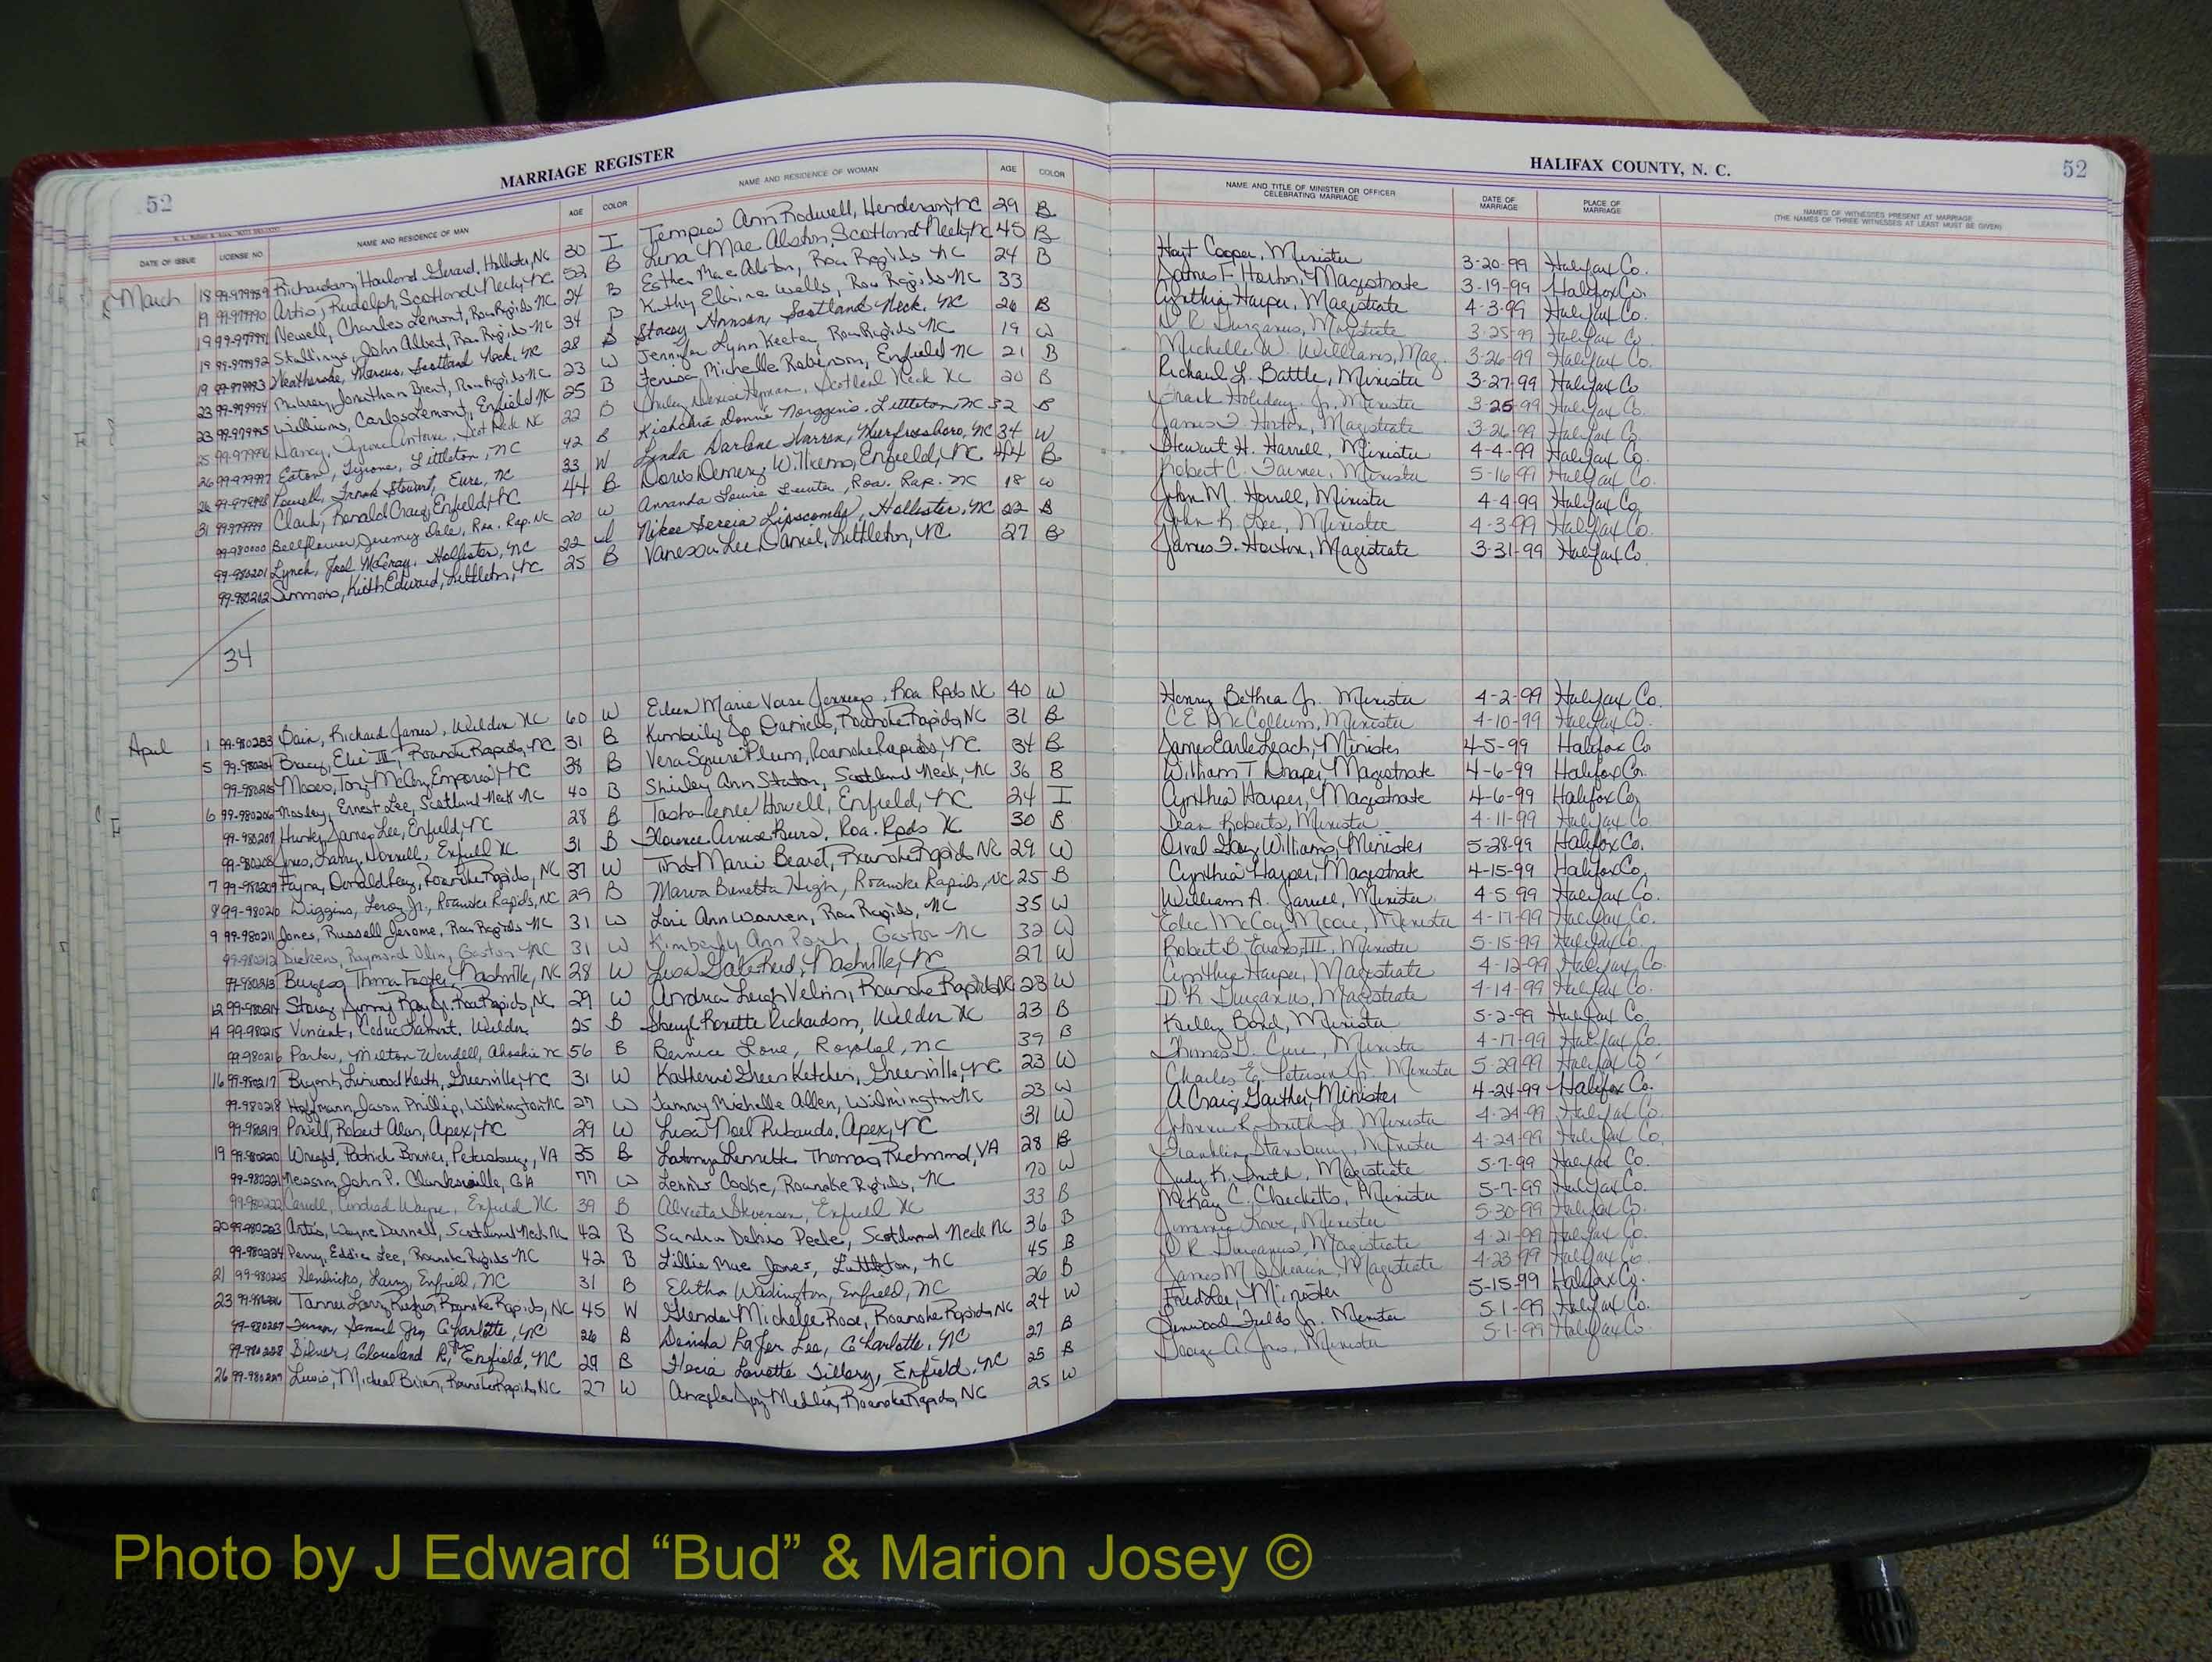 52
MARRIAGE REGISTER
DATE OF ISSUE LICENSE NO. NAME AND RESIDENCE OF MAN AGE COLOR NAME AND RESIDENCE OF WOMAN AGE COLOR
March 18 99-979989 Richardson, Harland Gerard, Hollister, NC 30 I Tempia Ann Rodwell, Henderson, NC 29 B
19 99-979990 Artis, Rudolph, Scotland Neck, NC 52 B Lena Mae Alston, Scotland Neck, NC 45 B
19 99-979991 Newell, Charles Lemont, Roa Rapids NC 24 B Esther Mae Alston, Roa Rapids NC 24 B
19 99-979992 Stallings, John Albert, Roa Rapids NC 34 B Kathy Elaine Wells, Roa Rapids NC 33
19 99-979993 Marcus, Scotland Neck, NC 28 B Stacey Scotland Neck, NC 26 B
23 99-979994 Jonathan Brent, Roa Rapids NC 23 W Jennifer Lynn Keeter, Roa Rapids NC 19 W
23 99-979995 Williams, Carlos Lemont, Enfield NC 25 B Michelle Robinson, Enfield NC 21 B
25 99-979996 Tyrone Antoine, Scot Neck NC 22 B Denise Scotland Neck NC 20 B
26 99-979997 Eaton, Tyrone, Littleton, NC 42 B Donnie Littleton NC 32 B
26 99-979998 Frank Stewart, Eure, NC 33 W Linda Darlene Warren, Murfreesboro, NC 34 W
31 99-979999 Clark, Ronald Craig, Enfield, NC 44 B Doris Demery Williams, Enfield, NC 44 B
99-980000 Bellflower, Jeremy Dale, Roa. Rap. NC 20 W Amanda Louise Roa. Rap. NC 18 W
99-980201 Lynch, Joel McCray, Hollister, NC 22 Nikee Lipscombe, Hollister, NC 22 B
99-980202 Simmons, Keith Edward, Littleton, NC 25 B Vanessa Lee Daniel, Littleton, NC 27 B
34
April 1 99-980203 Bain, Richard James, Weldon NC 60 W Eileen Marie Vose Jennings, Roa Rpds NC 40 W
5 99-980204 Bracy, Elie III, Roanoke Rapids, NC 31 B Kimberly Jo Daniels, Roanoke Rapids, NC 31 B
99-980205 Moses, Tony McCoy, Emporia, 38 B Vera Squire Plum, Roanoke Rapids, NC 34 B
6 99-980206 Mosley, Ernest Lee, Scotland Neck NC 40 B Shirley Ann Staton, Scotland Neck, NC 36 B
99-980207 James Lee, Enfield, NC 28 B Tasha Renee Howell, Enfield, NC 24 I
99-980208 Jones, Larry Enfield NC 31 B Florence Roa. Rpds NC 30 B
7 99-980209 Donald Ray, Roanoke Rapids, NC 37 W Tina Marie Beard, Roanoke Rapids NC 29 W
8 99-980210 Wiggins, Leroy Jr., Roanoke Rapids, NC 29 B Marva Burnetta High, Roanoke Rapids, NC 25 B
9 99-980211 Jones, Russell Jerome, Roa Rapids NC 31 W Lori Ann Warren, Roa Rapids, NC 35 W
99-980212 Dickens, Raymond Olin, Gaston NC 31 W Kimberly Ann Gaston NC 32 W
99-980213 Burgess, Thomas Foster, Nashville, NC 28 W Lisa Gale Reid, Nashville, NC 27 W
12 99-980214 Storey, Jimmy Ray Jr. Roa Rapids, NC 29 W Andrea Leigh Velvin, Roanoke Rapids NC 23 W
14 99-980215 Vincent, Cedric Lamont, Weldon 25 B Sheryl Ronette Richardson, Weldon NC 23 B
99-980216 Parker, Milton Wendell, Ahoskie NC 56 B Bernice Love, Roxobel, NC 39 B
16 99-980217 Bryant, Linwood Keith, Greenville, NC 31 W Katherine Green Ketchin, Greenville, NC 23 W
99-980218 Hoffmann, Jason Phillip, Wilmington NC 27 W Tammy Michelle Allen, Wilmington NC 23 W
99-980219 Powell, Robert Alan, Apex, NC 29 W Lisa Noel Apex, NC 31 W
19 99-980220 Wright, Patrick Petersburg, VA 35 B Latonya Thomas, Richmond, VA 28 B
99-980221 John P. Clarksville, GA 77 W Lennis Cooke, Roanoke Rapids, NC 70 W
99-980222 Wayne, Enfield NC 39 B Alveeta Enfield NC 33 B
20 99-980223 Artis, Wayne Darnell, Scotland Neck NC 42 B Sandra Peele, Scotland Neck NC 36 B
99-980224 Perry, Eddie Lee, Roanoke Rapids NC 42 B Lillie Mae Jones, Littleton, NC 45 B
21 99-980225 Hendricks, Larry, Enfield, NC 31 B Elitha Enfield, NC 26 B
23 99-980226 Larry Roanoke Rapids, NC 45 W Glenda Michelle Rose, Roanoke Rapids NC 24 W
99-980227 Samuel Jr, Charlotte, NC 26 B Lee, Charlotte, NC 27 B
99-980228 Silver, Cleveland R, Enfield, NC 29 B Lavette Tillery, Enfield, NC 25 B
26 99-980229 Micheal Brian, Roanoke Rapids, NC 27 W Angela Joy Medlin, Roanoke Rapids, NC 25 W
HALIFAX COUNTY, N. C. 52
NAME AND TITLE OF MINISTER OR OFFICER CELEBRATING MARRIAGE DATE OF MARRIAGE PLACE OF MARRIAGE NAMES OF WITNESSES PRESENT AT MARRIAGE
(THE NAMES OF THREE WITNESSES AT LEAST MUST BE GIVEN)
Hoyt Cooper, Minister 3-20-99 Halifax Co.
James F. Horton, Magistrate 3-19-99 Halifax Co.
Cynthia Harper, Magistrate 4-3-99 Halifax Co.
D. R. Gurganus, Magistrate 3-25-99 Halifax Co
Michelle W. Williams, Mag. 3-26-99 Halifax Co.
Richard L. Battle, Minister 3-27-99 Halifax Co
Frank Holiday, Jr. Minister 3-25-99 Halifax Co.
James F. Horton, Magistrate 3-26-99 Halifax Co.
Stewart H. Harrell, Minister 4-4-99 Halifax Co.
Robert C. Farmer, Minister 5-16-99 Halifax Co.
John M. Minister 4-4-99 Halifax Co
John K. Lee, Minister 4-3-99 Halifax Co.
James F. Horton, Magistrate 3-31-99 Halifax Co.
Henry Bethea Jr. Minister 4-2-99 Halifax Co.
C E McCollum, Minister 4-10-99 Halifax Co.
James Earle Leach, Minister 4-5-99 Halifax Co
William T Draper, Magistrate 4-6-99 Halifax Co.
Cynthia Harper, Magistrate 4-6-99 Halifax Co,
Dean Roberts, Minister 4-11-99 Halifax Co
Orval Gary Williams, Minister 5-28-99 Halifax Co.
Cynthia Harper, Magistrate 4-15-99 Halifax Co,
William A. Minister 4-5-99 Halifax Co.
Elec McCoy Moore, Minister 4-17-99 Halifax Co.
Robert B. Evans, III, Minister 5-15-99 Halifax Co.
Cynthia Harper, Magistrate 4-12-99 Halifax Co.
D. R Gurganus, Magistrate 4-14-99 Halifax Co.
Kelly Bond, Minister 5-2-99 Halifax Co,
Thomas G. Minister 4-17-99 Halifax Co.
Charles E. Peterson Jr. Minister 5-29-99 Halifax Co
A Craig Gaither, Minister 4-24-99 Halifax Co.
Johnnie R. Smith Sr. Minister 4-24-99 Halifax Co.
Franklin Stansbury, Minister 4-24-99 Halifax Co,
Judy K. Smith, Magistrate 5-7-99 Halifax Co.
McKay C. Checketts, Minister 5-7-99 Halifax Co.
Jimmie Minister 5-30-99 Halifax Co.
D R Gurganus, Magistrate 4-21-99 Halifax Co.
James M. Magistrate 4-23-99 Halifax Co
Fred Lee, Minister 5-15-99 Halifax Co.
Linwood Fields Jr. Minister 5-1-99 Halifax Co.
George A. Minister 5-1-99 Halifax Co.
Photo by J Edward “Bud” & Marion Josey ©